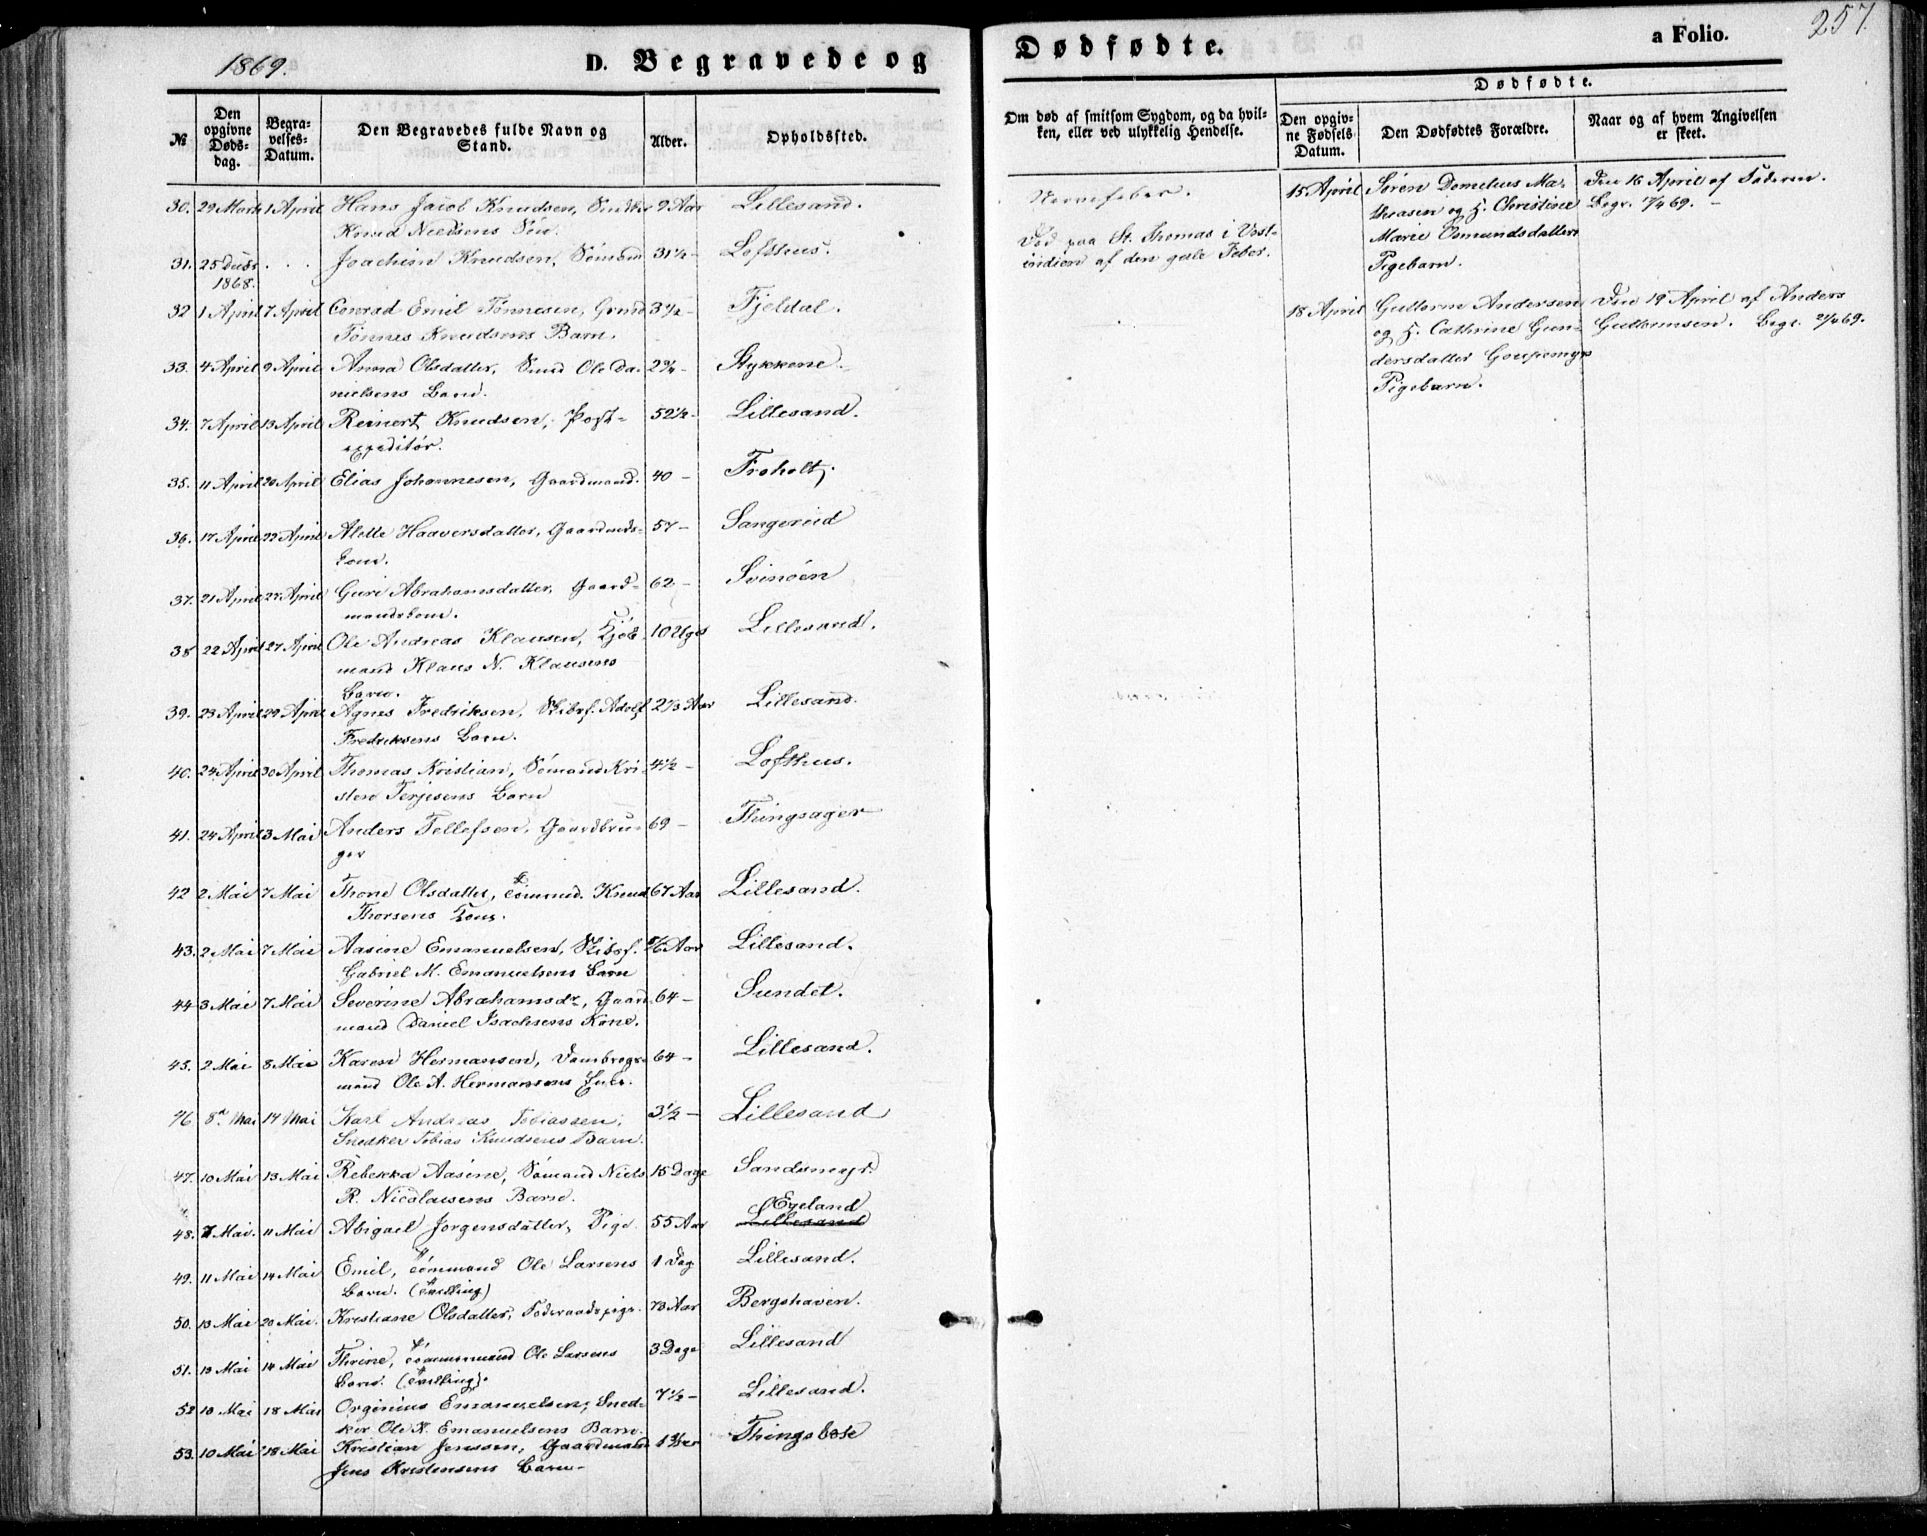 1869.
D. Begravede og
Dødfødte.
a Folio.
257.
№
Den opgivne Døds-dag.
Begra-velses-Datum.
Den Begravedes fulde Navn og Stand.
Alder.
Opholdssted.
Om død af smitsom Sygdom, og da hvil-ken, eller ved ulykkelig Hendelse.
Dødfødte.
Den opgiv-ne Fødsels Datum.
Den Dødfødtes Forældre.
Naar og af hvem Angivelsen er skeet.
30. 29 Marts 1 April Hans Jacob Knudsen, 9 Aar Lillesand. Nervefeber.
Knud Nielsens Søn.
31. 25 Decbr 1868. . . . Joachim Knudsen, Sømand 31½ - Lofthus. Død paa St. Thomas i Vest-
indien af den gule Feber.
32 1 April 7 April Conrad Emil Tønnesen, Grmd 3½ - Fjeldal.
Tønnes Knudsens Barn.
33. 4 April 9 April Anna Olsdatter, Smed Ole Da- 2¾ - Stykkene.
nielsens Barn.
34. 7 April 13 April Reinert Knudsen, Post- 52½ - Lillesand.
expeditør.
35. 11 April 20 April Elias Johannesen, Gaardmand. 40 - Froholt.
36. 17 April 22 April Alette Haaversdatter, Gaardmds- 57 - Sangereid
kone.
37. 21 April 27 April Guri Abrahamsdatter, Gaard- 62 - Svinøen
mandskone.
38 22 April 27 April Ole Andreas Klausen, Kjøb- 10 Uger Lillesand.
mand Klaus N. Klausens
Barn.
39. 23 April 29 April Agnes Fredriksen, Skibsf. Adolf 2⅔ Aar Lillesand.
Fredriksens Barn.
40. 24 April 30 April Thomas Kristian, Sømand Kri- 4½ - Lofthus.
sten Terjesens Barn
41. 24 April 3 Mai Anders Tellefsen, Gaardbru- 69 - Thingsager
ger
42 2 Mai 7 Mai Thone Olsdatter, Tømmd. Knud 67 Aar Lillesand.
Thorsens Kone.
43. 2 Mai 7 Mai Aasine Emanuelsen, Skibsf. 5/6 Aar Lillesand.
Gabriel M. Emanuelsens Barn
44 3 Mai 7 Mai Severine Abrahamsdr, Gaard 64 - Sundet.
mand Daniel Isachsens Kone.
45. 2 Mai 8 Mai Karen Hermansen, Dannebrogs- 64 - Lillesand.
mand Ole A. Hermansens Enke.
46. 8de Mai 14 Mai Karl Andreas Tobiassen, 3½ - Lillesand
Snedker Tobias Knudsens Barn.
47. 10 Mai 13 Mai Rebekka Aasine, Sømand Niels 15 Dage Sandsmyr.
R. Nicolaisens Barn.
Eyeland
48. 7 Mai. 11 Mai Abigael Jorgensdatter, Pige. 55 Aar Lillesand
49. 11 Mai 14 Mai Emil, Tømmand Ole Larsens 1 Dag Lillesand.
Barn. (Tvilling)
50. 13 Mai 20 Mai. Kristiane Olsdatter, Føderaadspige. 73 Aar Bergshaven.
51. 13 Mai 14 Mai Thrine, Tømmermand Ole Larsens 3 Dage Lillesand
Barn. (Tvilling).
52 10 Mai 18 Mai Orginius Emanuelsen, Sned- 7½ - Lillesand.
ker Ole K. Emanuelsens Barn.
53. 10 Mai 18 Mai Kristian Jenssen, Gaardmand Thingsbøle
Jens Kristensens Barn
15 April Søren Domelius Ma- Den 16 April af Faderen.
thiasen og H. Christine Begr. 17/4 69. -
Marie Osmundsdatters
Pigebarn.
18 April Guttorm Andersen Den 19 April af Anders
og H. Cathrine Gun- Guttormsen. Begr. 21/4 69.
dersdatter
Pigebarn.